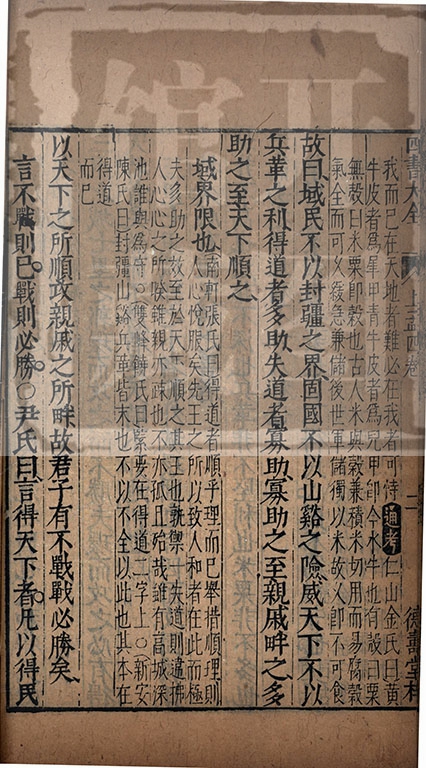 四書大全
上孟四卷
二
德壽堂梓
我而已在天地者難必在我者可恃
通考
仁山金氏曰黄
牛皮者爲犀甲青牛皮者爲兕甲即今水牛也有殻曰粟
無殻曰米粟即穀也古人米與穀兼積米切用而易腐穀
氣全而可久緩急兼儲後世軍儲獨以米故久即不可食
故曰域民不以封疆之界固國不以山谿之險威天下不以
兵革之利得道者多助失道者寡助寡助之至親戚畔之多
助之至天下順之
域界限也
南軒張氏曰得道者順乎理而已舉措順理則
人心悅服矣先王之所以致人和者在此而極
夫多助之故至於天下順之其王也孰禦一失道則違拂
人心心之所睽雖親亦踈也不亦孤且殆哉誰有高城深
池誰與爲守○雙峰饒氏曰緊要在得道二字上○新安
陳氏曰封疆山谿兵革皆末也不以不全以此也其本在
得道
而已
以天下之所順攻親戚之所畔故君子有不戰戰必勝矣
言不戰則已戰則必勝○尹氏曰言得天下者凡以得民